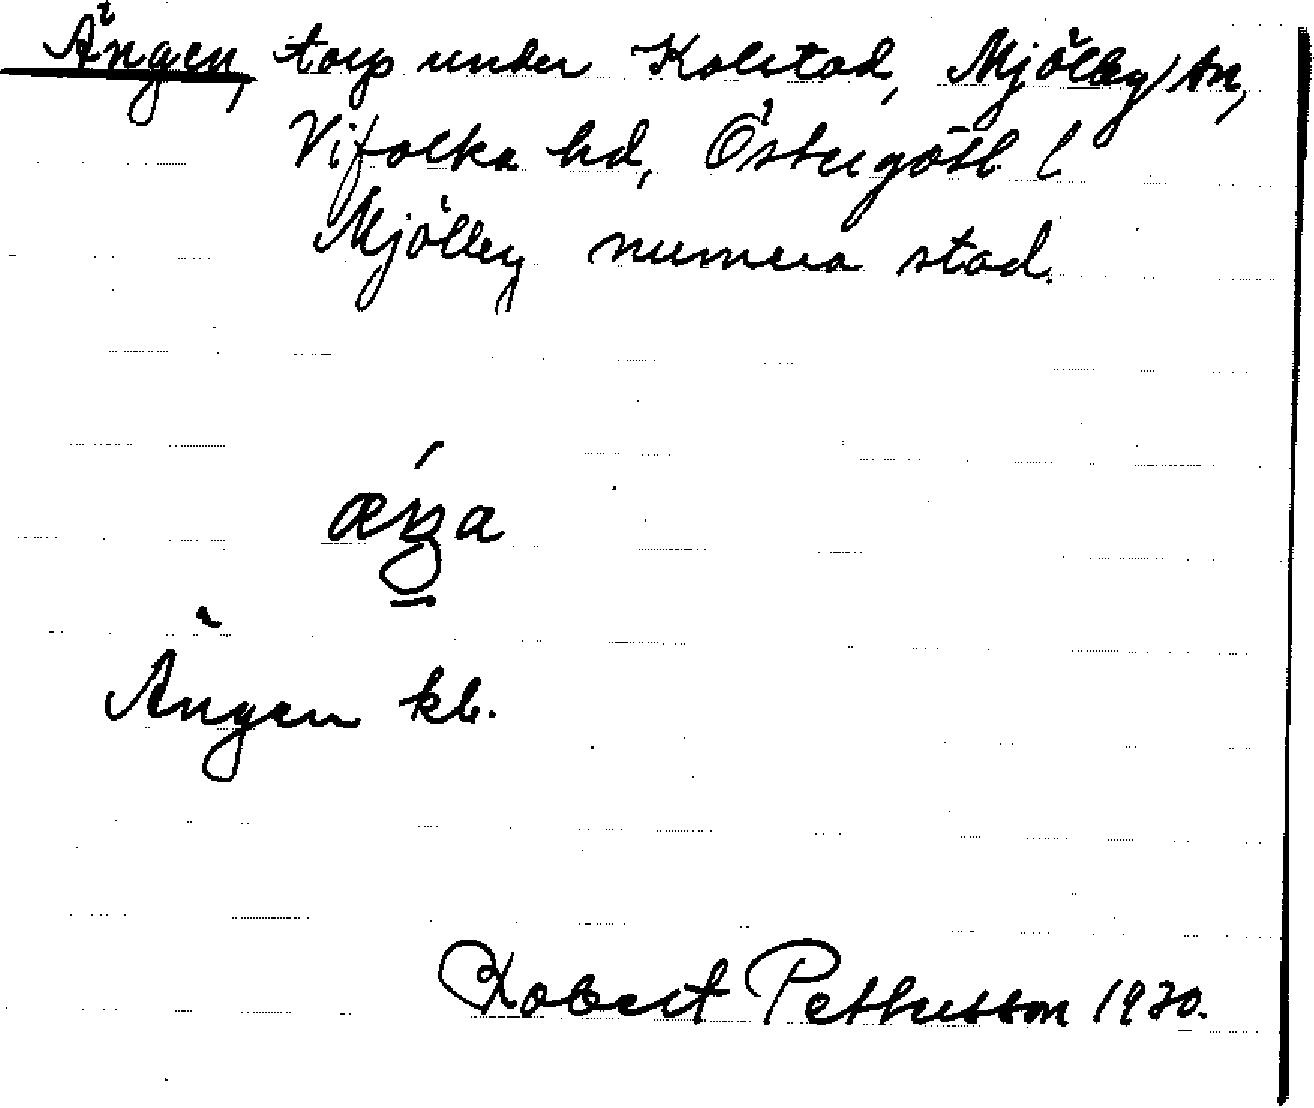 Ängen, torp under Kolstad, Mjölby sn,
Vifolka hd, Östergötl l
Mjölby numera stad.
Ängen kb.
Robert Pettersson 1930.